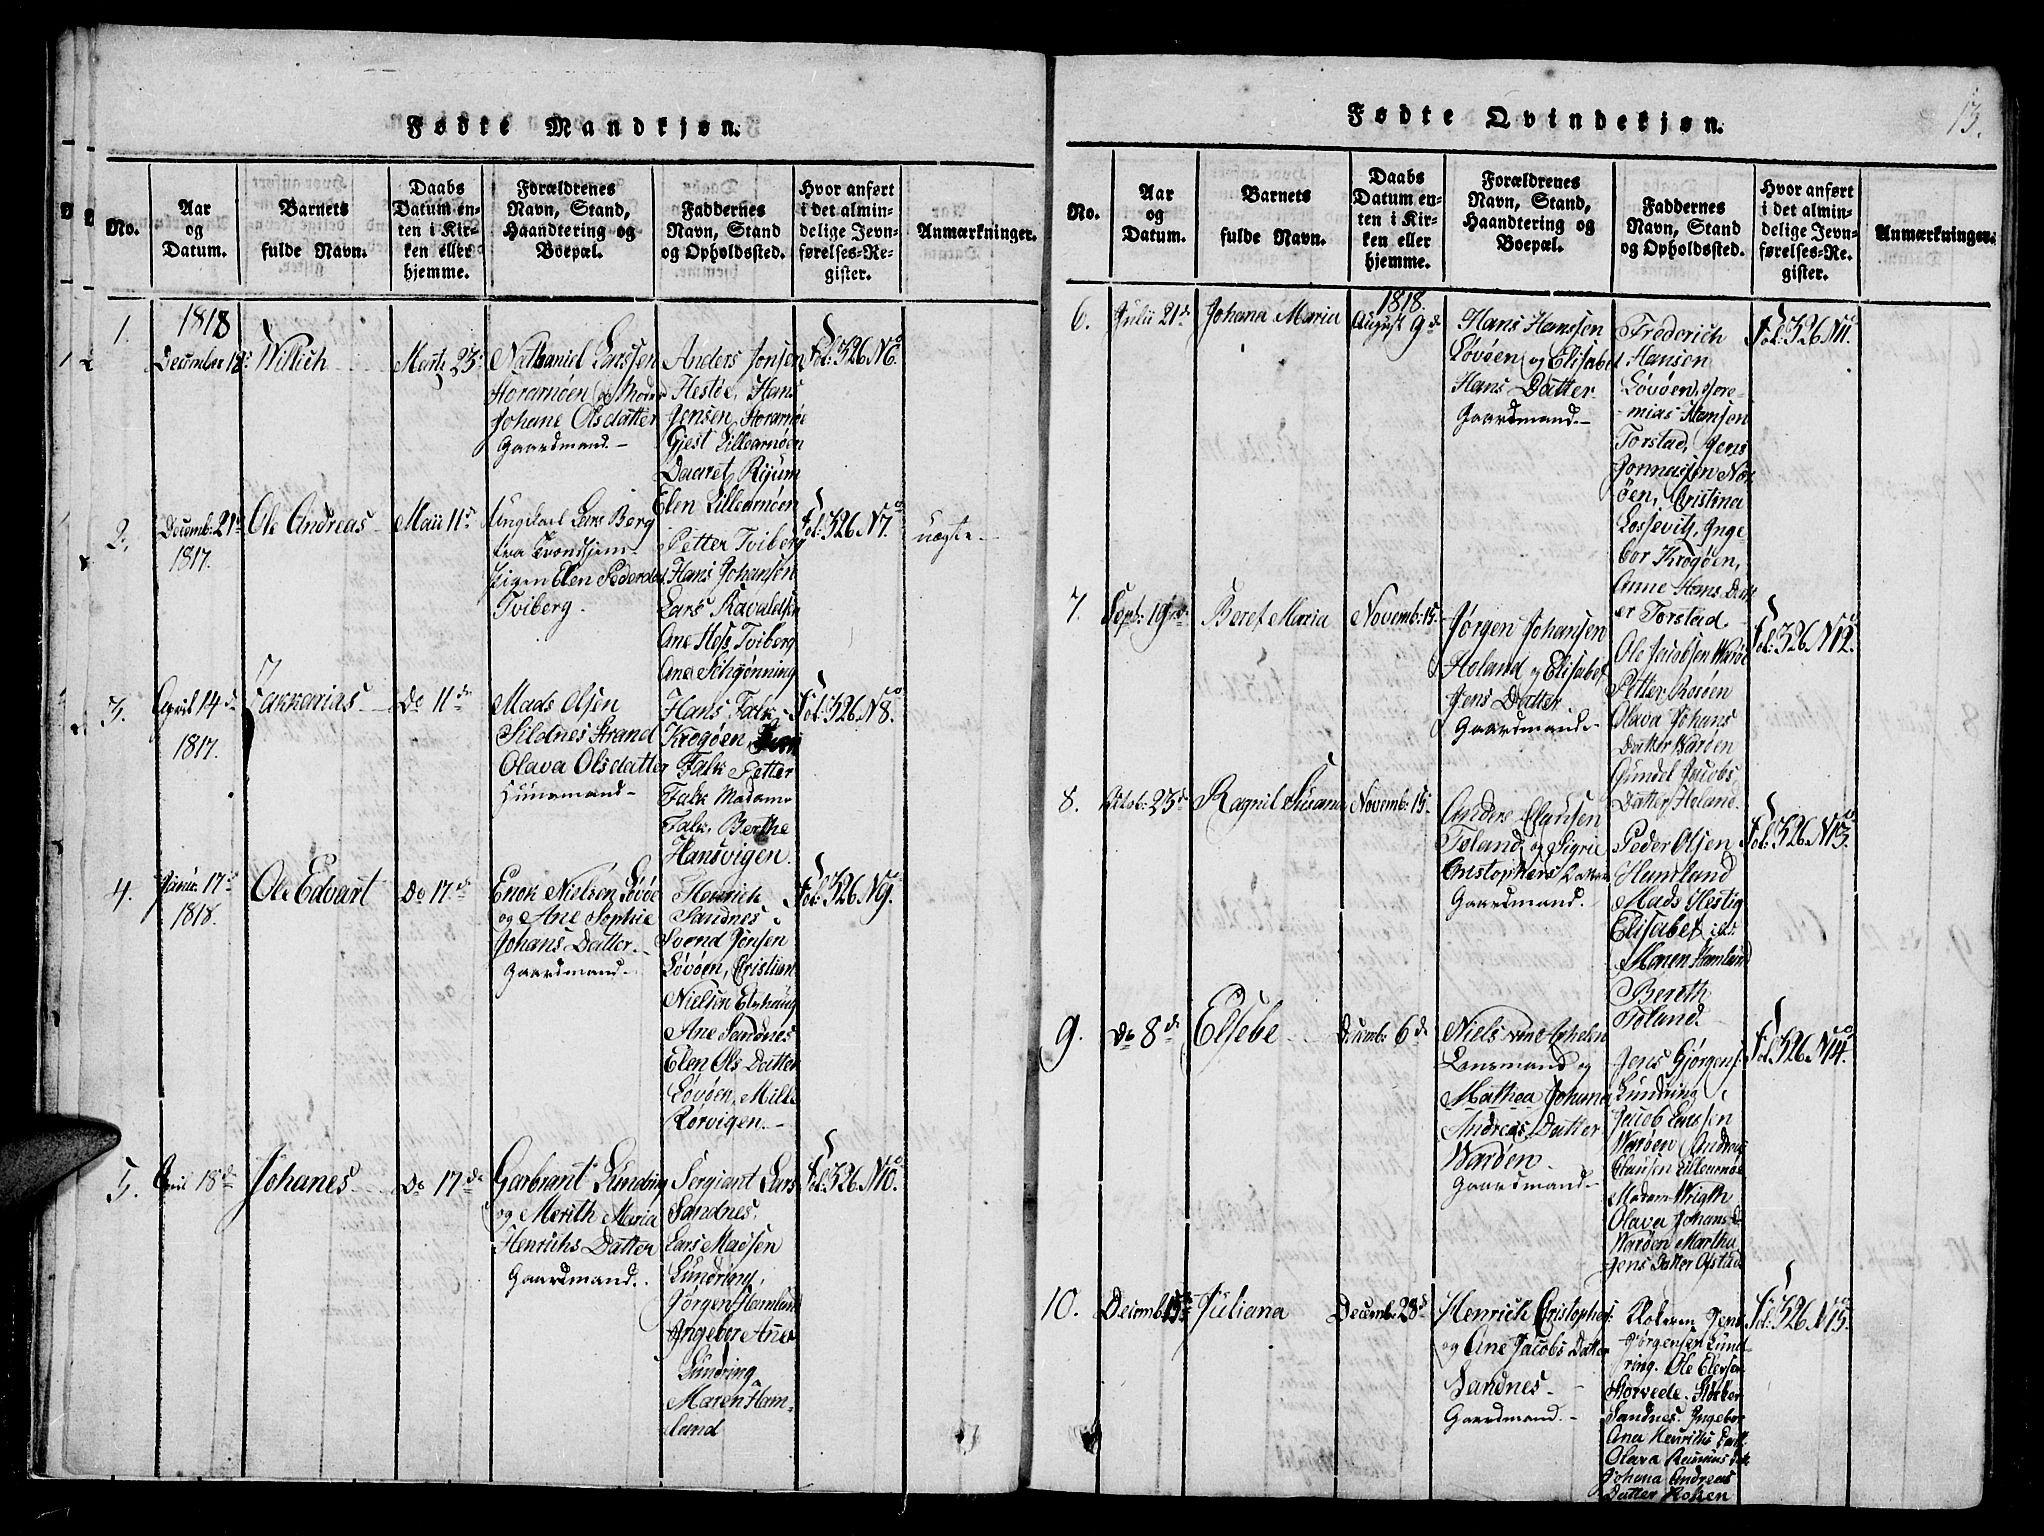 Fødte Mandkjøn.
No.
Aar
og
Datum.
Barnets
fulde Navn.
Daabs
Datum en-
ten i Kir-
ken eller
hjemme.
Forældrenes
Navn, Stand,
Haandtering og
Boepæl.
Faddernes
Navn, Stand
og Opholdssted.
Hvor anført
i det almin-
delige Jevn-
førelses-Re-
gister.
Anmærkninger.
1.
1818
December 18d
Willich
Marti 23d
Nathaniel Larssen
Horarnøen og Moder
Johane Olsdatter
Gaardmand.
Anders Jonsen
Hestøe, Hans
Jensen, Horarnøe
Gjest Lillearnøen
Daaret Riium
Elen Lillearnøen
Fol: 326 No 6.
2.
Decemb: 21d
1817.
Ole Andreas
Maii 11d
Ungkarl Lars Berg
fra Trondhjem
Pigen Elen Pedersdat
Tviberg.
Petter Tviberg
Hans Johansen
Lars Ravaldsen
Ane Hess, Tviberg
Ane Schgønning
Fol: 326 No 7.
uægte
3.
April 14d
1817.
Zakkarias
Do 11de
Mads Olsen
Sildnes Strand
Olava Olsdatter
Huusmand
Hans Falk
Krogøen
Falk Petter
Falk Madame
Falk, Berthe
Hansvigen.
Fol: 326 No 8.
4.
Januar 17d
1818.
Ole Edvart
Do 17de
Enok Nielsen Løvøe
og Ane Sophie
Johans Datter
Gaardmand
Henrich
Sandnes
Svend Jonsen
Løvøen, Cristian
Nielsen Elshaug
Ane Sandnes
Elen Ols Datter
Løvøen, Milts
Rørvigen.
Fol: 326 No 9.
5.
April 18de
Johanes
Do 17de
Garbrant Lundring
og Merith Maria
Henrichs Datter
Gaardmand.
Sergiant Lars
Sandnes.
Lars Madsen
Lundring,
Jørgen Hamlund
Ingebor Anne
Lundring
Maren Ham-
lund
Fol: 326 No 10.
Fødte Qvindekjøn.
13.
No.
Aar
og
Datum.
Barnets
fulde Navn.
Daabs
Datum en-
ten i Kir-
ken eller
hjemme.
Forældrenes
Navn, Stand,
Haandtering og
Boepæl.
Faddernes
Navn, Stand
og Opholdssted.
Hvor anført
i det almin-
delige Jevn-
førelses-Re-
gister.
Anmærkninger.
6.
Julii 21d
Johana Maria
1818.
August 9d
Hans Hanssen
Løvøen og Elisabet
Hans Datter
Gaardmand.
Frederich
Hansen
Løvøen, Jere-
mias Hansen
Torstad, Jens
Jonnassen Nor
øen, Cristina
Lossevits, Inge
bor Krogøen,
Anne Hans Datt
er Torstad.
Fol: 326 No 11.
7.
Sept: 19de
Beret Maria
Novemb: 15.
Jørgen Johansen
Holand og Elisabet
Jens Datter
Gaardmand.
Ole Jacobsen Warøe
Petter Rosøen
Olava Johans
Datter Warøen
Gundel Jacobs
Datter Holand.
Fol: 326 No 12.
8.
Octob: 23d
Ragnil Susana
Novemb: 15.
Anders Clausen
Toland og Sigrie
Cristophers Datter
Gaardmand.
Peder Olsen
Hamlund
Mads Hestig
Elisabet
Maren Hamlund
Bereth
Toland.
Fol: 326 No 13.
9.
Do 8de
Elsebe
Decemb: 6d
Niels von Aphelen
Lensmand og
Mathea Johana
Andreas Datter
Warøen.
Gaardmand
Jens Gjørgens.
Lundring,
Jacob Larssen
Warøen, Andreas
Clausen Lillearnøe
Madam Wrigth
Olava Johans D
Warøen Martha
Jens Datter Ofstad
Fol: 326 No 14.
10.
Decemb: 15
Juliana
Decemb: 28d
Henrich Cristophers:
og Ane Jacobs Datter
Sandnes.
Gaardmand.
Jens
Jørgensen Lund-
ring. Ole Elersen
Storvede.
Sandnes. Ingebor
Ana Henrichs Datt
Olava
Johana Andreas
Datter
Fol: 326 No 15.